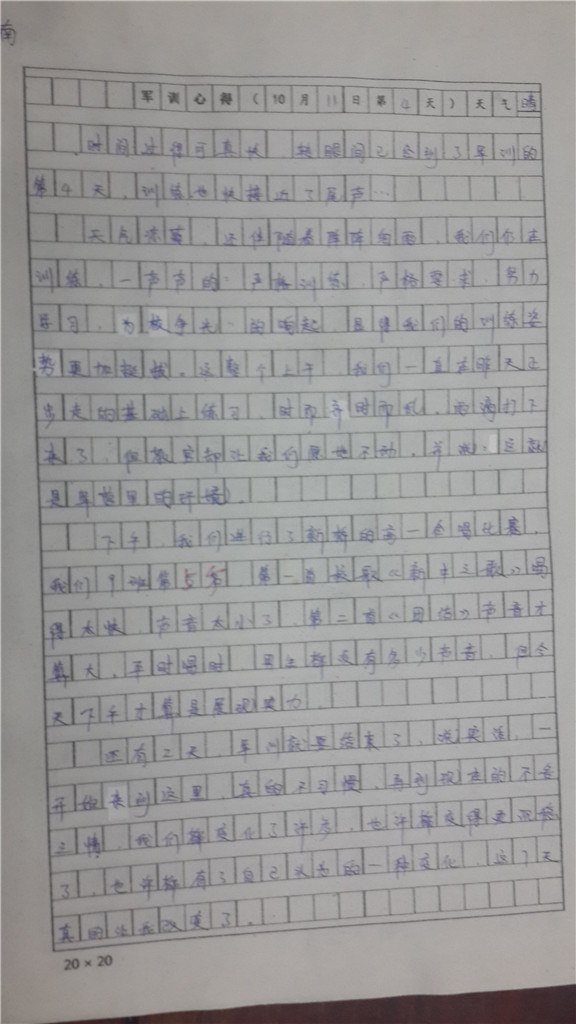 南
军训心得(10月11日第4天)天气晴
时间过得可真快,转眼间已会到了军训的
第4天,训练也快接近了尾声…
天气凉,还伴随着阵阵的雨,我们仍在
训练,一声声的:严格训练,严格要求,努力
学习,为校争光!的响起,显得我们的训练姿
势更加挺拔。这整个上午,我们一直在昨天正
步走的基础上练习,时而齐时而乱,雨滴打下
来了,但教官却让我们原地不动,并说:这就
是军营里的环境。
下午,我们进行了新的高一合唱比赛,
我们9班第5名,第一首长歌《新中之歌》唱
得太快,声音太小了,第二首《团结》声音才
算大,平时唱时,男生都没有多少声音,但今
天下午才算是展现实力。
还有2天,军训就要结束了,说实话,一
开始来到这里,真的不习惯,再到现在的不舍
之情,我们都变化了许多,也许都变得更
了,也许都有了自己认为的一种变化,这7天
真的让我改变了。
20×20